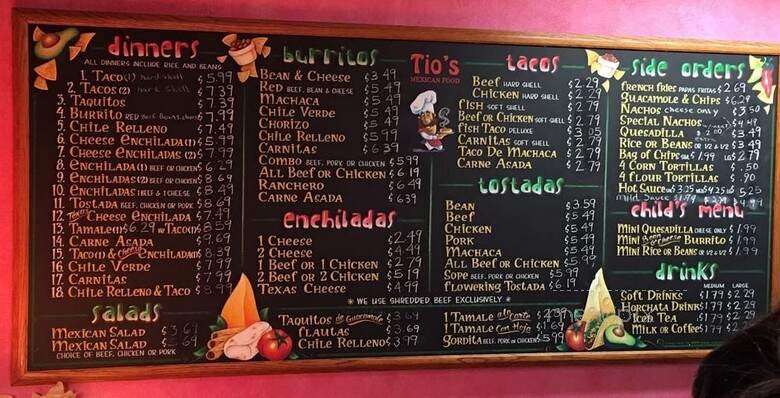 dinners
ALL DINNERS INCLUDE RICE AND BEANS
1. Taco (1) hard shell $5.99
2. Tacos (2) hard shell $7.39
3. Taquitos $7.39
4. Burrito $7.99
5. Chile Relleno $7.49
6. Cheese Enchilada (1) $5.99
7. Cheese Enchiladas (2) $7.99
8. Enchilada (1) BEEF OR CHICKEN $6.29
9. Enchiladas (2) BEEF OR CHICKEN $8.69
10. Enchiladas 1 BEEF & 1 CHEESE $8.49
11. Tostada BEEF, CHICKEN OR PORK $8.69
12 Texas Cheese Enchilada $7.49
13. Tamale (1) $6.29 w/Taco (1) $8.59
14. Carne Asada $9.69
15. Taco (1) & Cheese Enchilada (1) $8.39
16. Chile Verde $7.99
17. Carnitas $7.99
18 Chile Relleno & Taco $8.99
salads
Mexican Salad $3.69
Mexican Salad
CHOICE OF BEEF, CHICKEN OR PORK
burritos
Bean & Cheese $3.49
Red BEEF, BEAN & CHEESE $5.49
Machaca $5.49
Chile Verde $5.49
Chorizo $5.49
Chile Relleno $5.99
Carnitas $6.39
Combo BEEF, PORK OR CHICKEN $5.99
All Beef or Chicken $6.19
Ranchero $6.49
Carne Asada $6.39
enchiladas
1 Cheese $2.49
2 Cheese $4.49
1 Beef or 1 Chicken $2.79
2 Beef or 2 Chicken $5.19
Texas Cheese $4.99
* WE USE SHREDDED BEEF EXCLUSIVELY *
Taquitos de Guacamole $3.69
flautas $3.69
Chile Relleno $3.99
Tio's
MEXICAN FOOD
tacos
Beef HARD SHELL $2.79
Chicken HARD SHELL $2.79
fish SOFT SHELL $2.79
Beef or Chicken SOFT SHELL $2.79
fish Taco DELUXE $3.05
Carnitas SOFT SHELL $2.79
Taco De Machaca $2.79
Carne Asada $2.79
tostadas
Bean $3.59
Beef $5.49
Chicken $5.49
Pork $5.49
Machaca $5.49
All Beef or Chicken $5.99
Sope BEEF, PORK OR CHICKEN $5.99
flowering Tostada $6.19
1 Tamale a la carte $2.39
1 Tamale con hoja $1.69
Gordita BEEF, PORK OR CHICKEN $5.99
side orders
french fries PAPAS FRITAS $2.69
Guacamole & Chips $6.29
Nachos CHEESE ONLY $3.50
Special Nachos $4.49
Quesadilla $3.49
Rice or Beans OR 1/2 & 1/2 $3.49
Bag of Chips SM $1.99 LG $2.79
4 Corn Tortillas $.50
4 flour Tortillas $.90
Hot Sauce SM $3.25 MED $4.25 LG $5.25
Mild Sauce $4.99
child's menu
Mini Quesadilla CHEESE ONLY $1.99
Mini Bean & Cheese Burrito $1.99
Mini Rice or Beans OR 1/2 & 1/2 $1.99
drinks
MEDIUM LARGE
Soft Drinks $1.79 $2.29
Horchata Drinks $1.79 $2.29
Iced Tea $1.79 $2.29
Milk or Coffee $1.79 $2.29